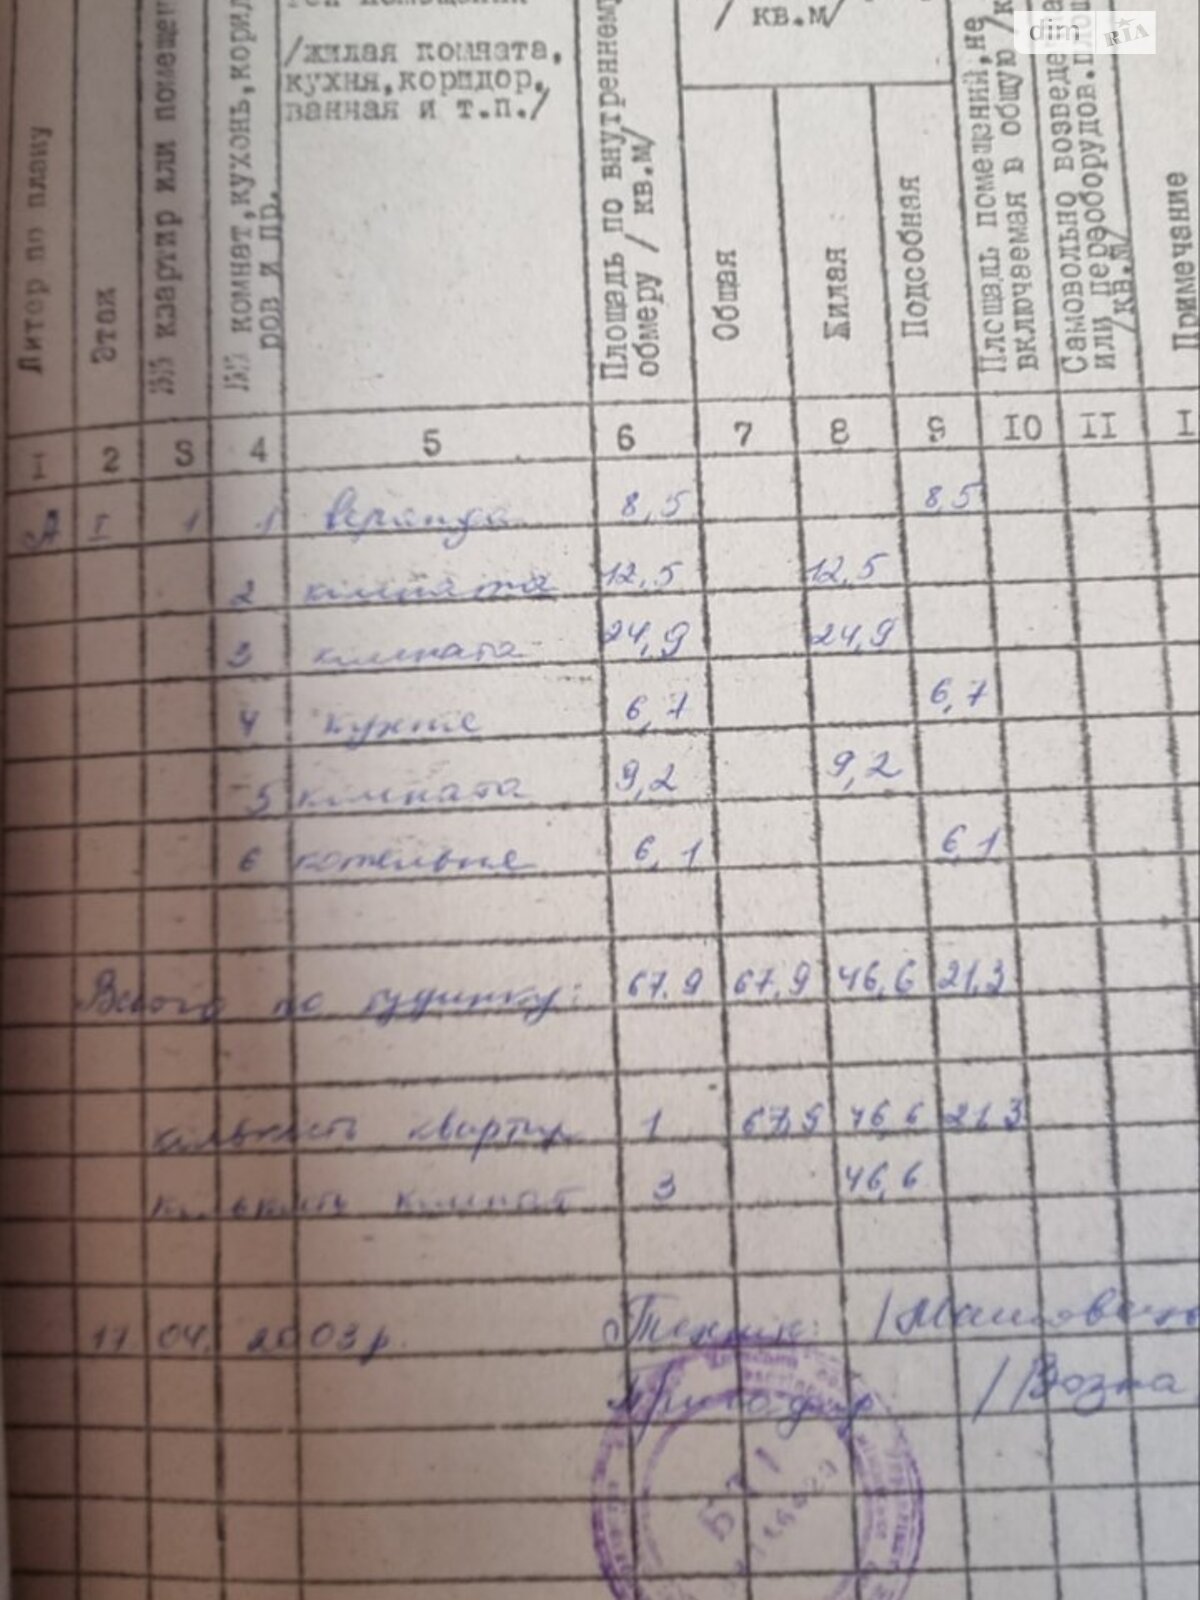 dim RIA
/жилая комната,
кухня, коридор,
ванная и т.п./
/ кв.м/
Литер по плану
Этаж
№№ квартир или помещен
№№ комнат, кухонь, корид
ров и пр.
Площадь по внутреннему
обмеру / кв.м/
Общая
Жилая
Подсобная
Площадь помещений, не
включаемая в общую /к
Самовольно возведе
или переоборудов. площ
/кв.м/
Примечание
I 2 3 4 5 6 7 8 9 IO II I
А I 1 1 веранда 8,5 8,5
2 кімната 12,5 12,5
3 кімната 24,9 24,9
4 кухня 6,7 6,7
5 кімната 9,2 9,2
6 котельня 6,1 6,1
Всього по будинку: 67,9 67,9 46,6 21,3
кількість квартир 1 67,9 46,6 21,3
кількість кімнат 3 46,6
11 04. 2003р. Технік:
/Возна
БТІ